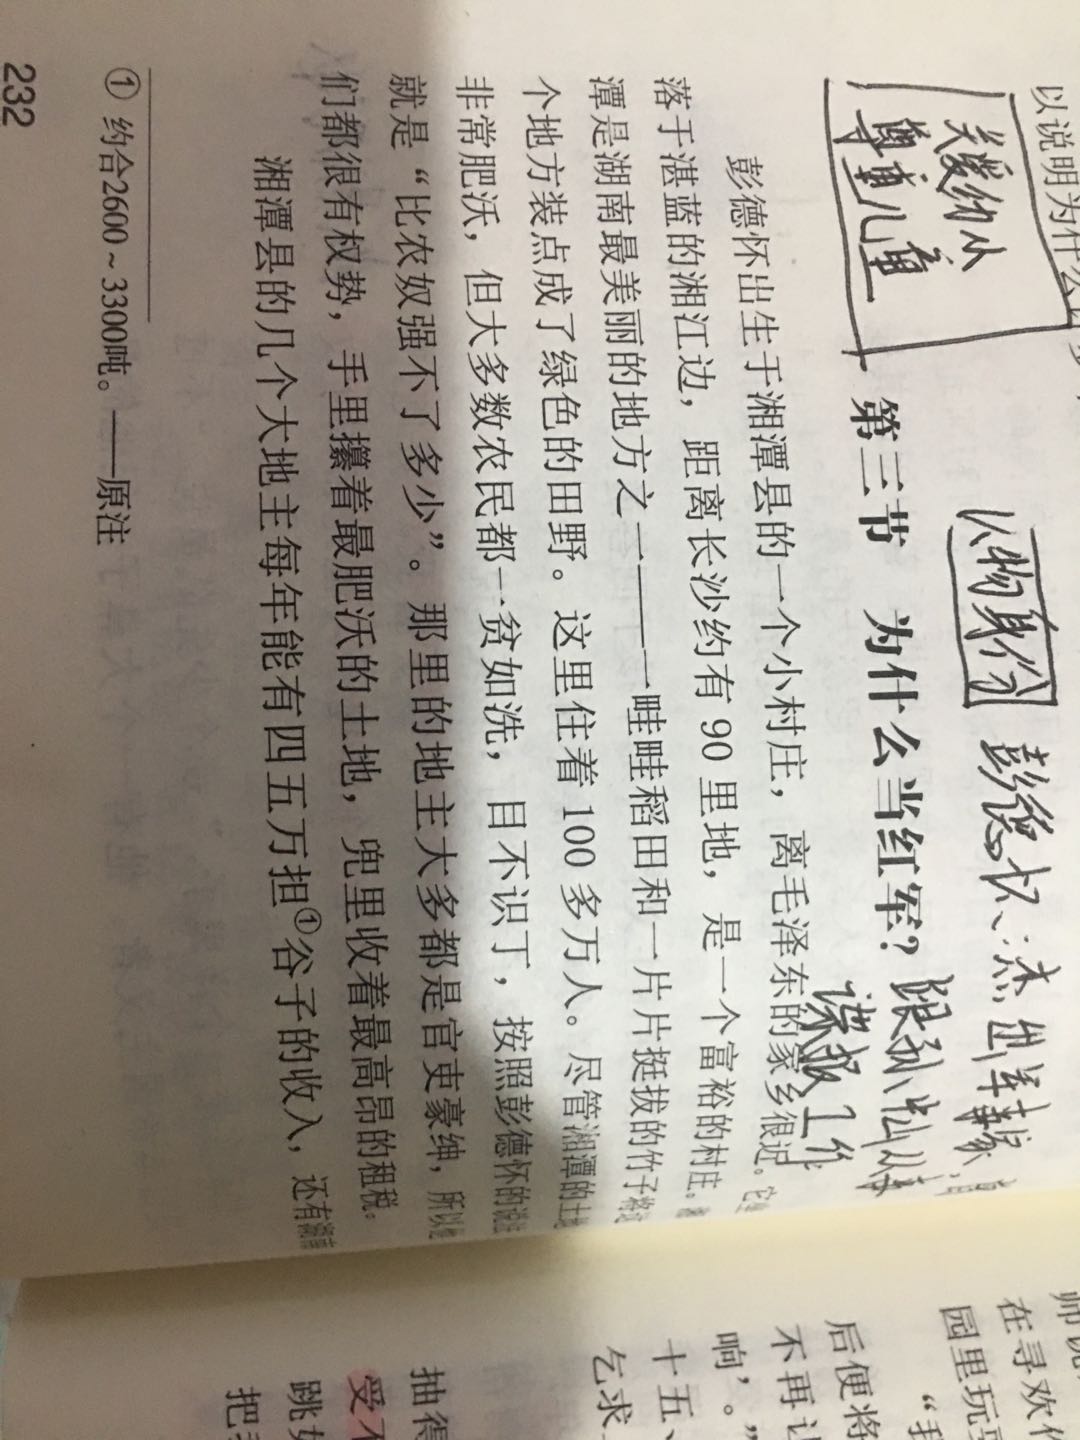 以说明为什么
关爱幼从
尊重儿童
人物身份
彭德怀、
谍报工作
第三节 为什么当红军?
彭德怀出生于湘潭县的一个小村庄，离毛泽东的家乡很近。它坐
落于湛蓝的湘江边，距离长沙约有90里地，是一个富裕的村庄。湘
潭是湖南最美丽的地方之一——一畦畦稻田和一片片挺拔的竹子将这
个地方装点成了绿色的田野。这里住着100多万人。尽管湘潭的土地
非常肥沃，但大多数农民都一贫如洗，目不识丁，按照彭德怀的说法
就是“比农奴强不了多少”。那里的地主大多都是官吏豪绅，所以他
们都很有权势，手里攥着最肥沃的土地，兜里收着最高昂的租税。
湘潭县的几个大地主每年能有四五万担①谷子的收入，还有湖南
① 约合2600~3300吨。——原注
232
在寻欢作
园里玩耍
“我
后便将
不再让
响’。”
十五、
乞求
抽得
受不
跳如
把